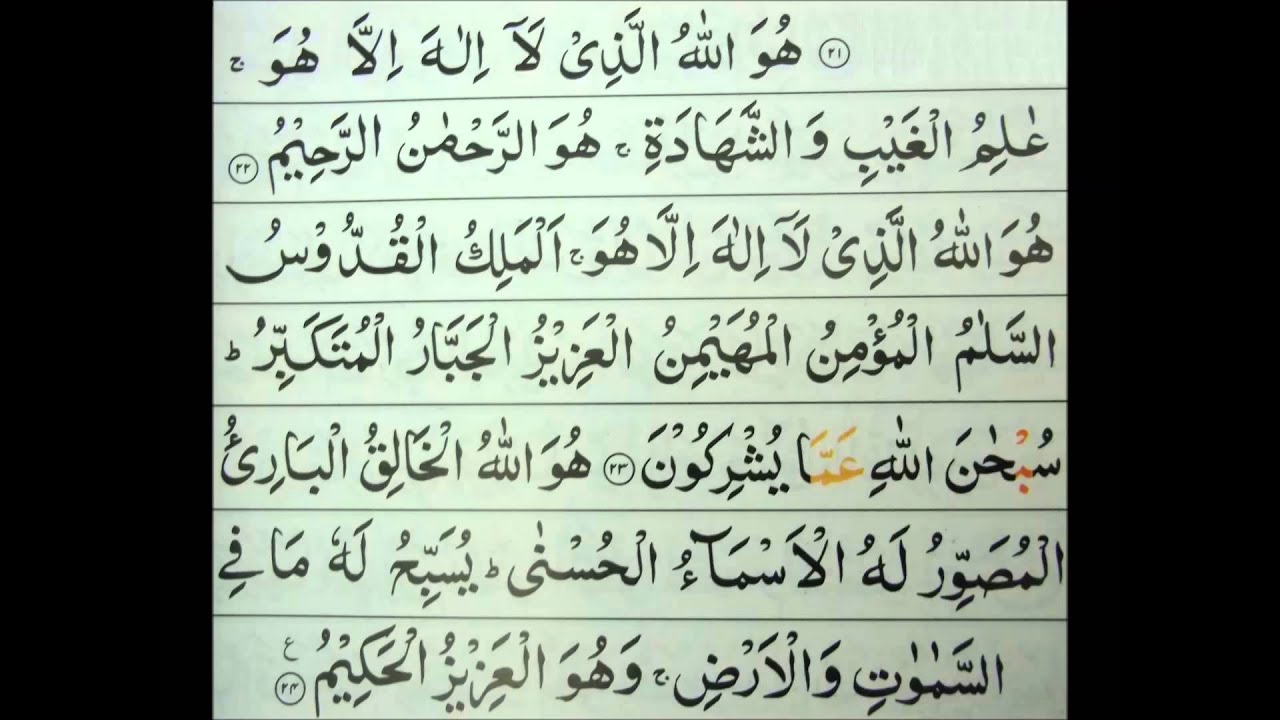 ﴿۲۱﴾ هُوَ اللّٰهُ الَّذِیْ لَاۤ اِلٰهَ اِلَّا هُوَ ۚ
عٰلِمُ الْغَیْبِ وَالشَّهَادَةِ ۚ هُوَ الرَّحْمٰنُ الرَّحِیْمُ ﴿۲۲﴾
هُوَ اللّٰهُ الَّذِیْ لَاۤ اِلٰهَ اِلَّا هُوَ ۚ اَلْمَلِكُ الْقُدُّوْسُ
السَّلٰمُ الْمُؤْمِنُ الْمُهَیْمِنُ الْعَزِیْزُ الْجَبَّارُ الْمُتَكَبِّرُ ؕ
سُبْحٰنَ اللّٰهِ عَمَّا یُشْرِكُوْنَ ﴿۲۳﴾ هُوَ اللّٰهُ الْخَالِقُ الْبَارِئُ
الْمُصَوِّرُ لَهُ الْاَسْمَآءُ الْحُسْنٰی ؕ یُسَبِّحُ لَهٗ مَا فِی
السَّمٰوٰتِ وَالْاَرْضِ ۚ وَهُوَ الْعَزِیْزُ الْحَكِیْمُ ﴿۲۴﴾ ع